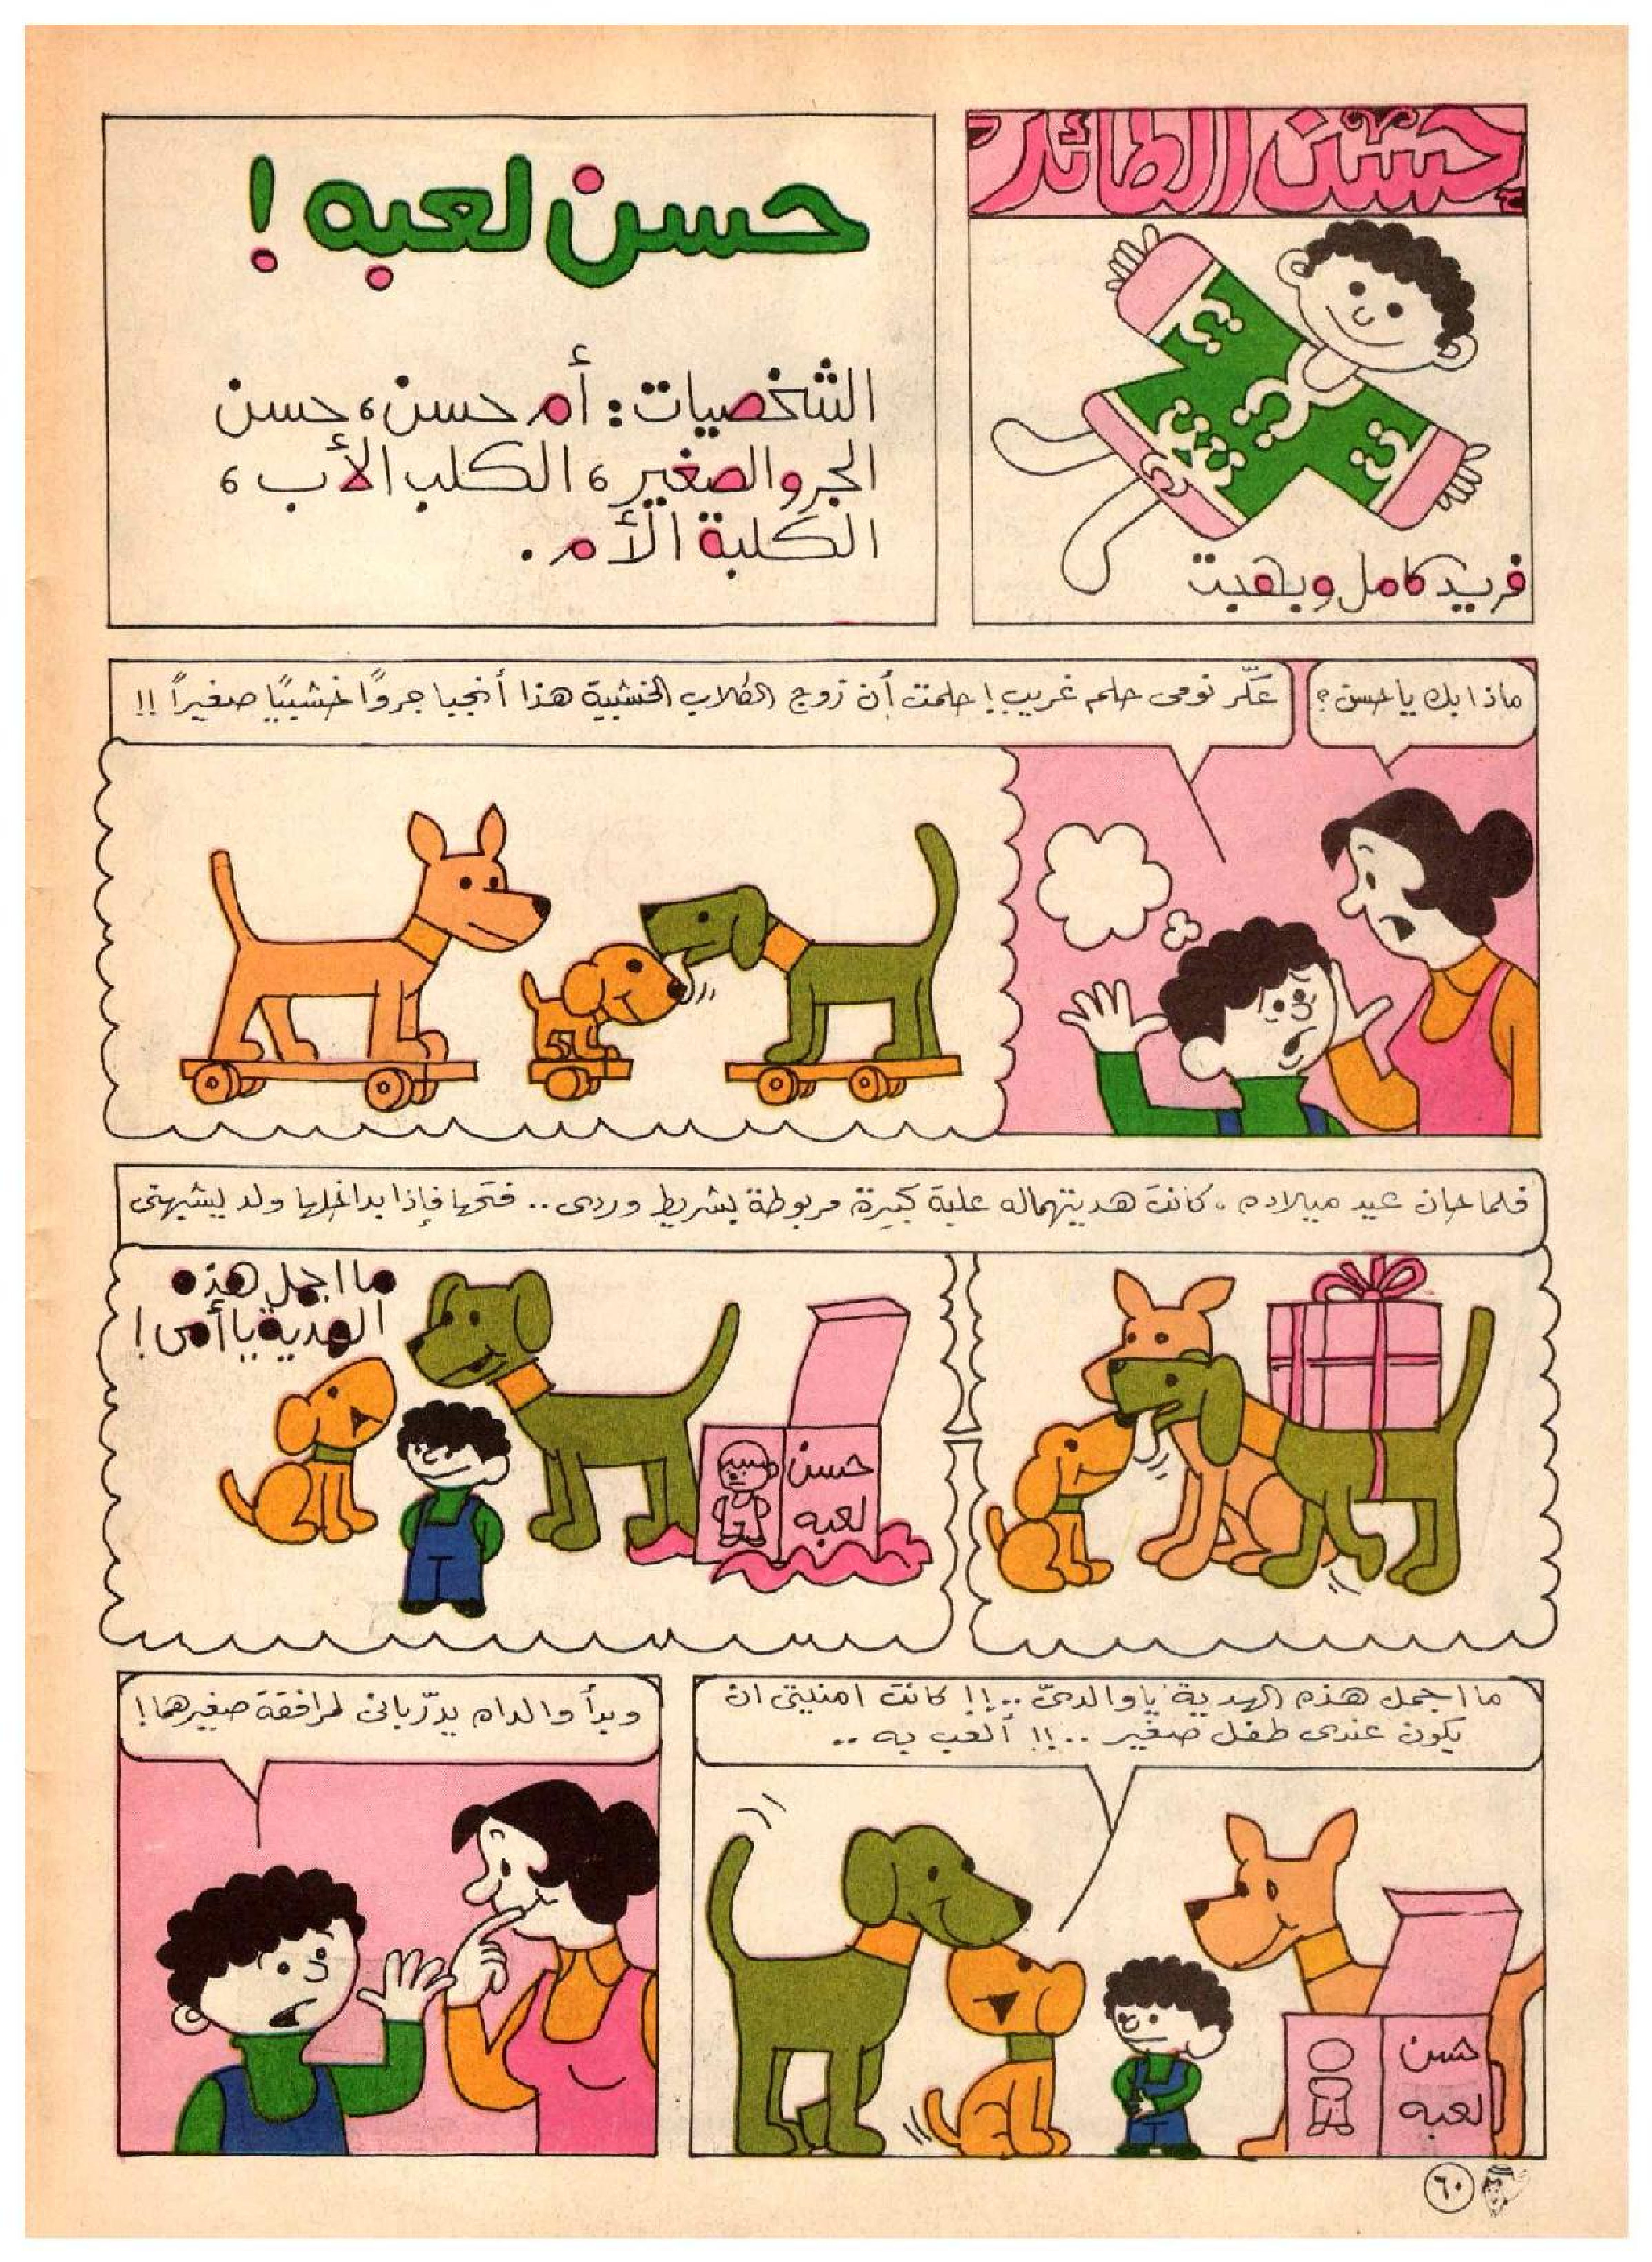 حسن الطائر
فريد كامل وبهجت
حسن لعبه !
الشخصيات : أم حسن ، حسن
الجرو الصغير ، الكلب الأب ،
الكلبة الأم .
ماذا بك يا حسن ؟
عكّر نومى حلم غريب ! حلمت أن زوج الكلاب الخشبية هذا أنجبا جروًا خشبيًا صغيراً !!
فلما حان عيد ميلاده ، كانت هديتهما له علبة كبيرة مربوطة بشريط وردى .. فتحها فإذا بداخلها ولد يشبهنى
ما اجمل هذه
الهدية يا أمى !
حسن
لعبه
ما اجمل هذه الهدية يا والدىّ ..!! كانت امنيتى ان
يكون عندى طفل صغير ..!! ألعب به ..
حسن
لعبه
وبدأ والداه يدرّبانى لمرافقة صغيرهما !
٦٠